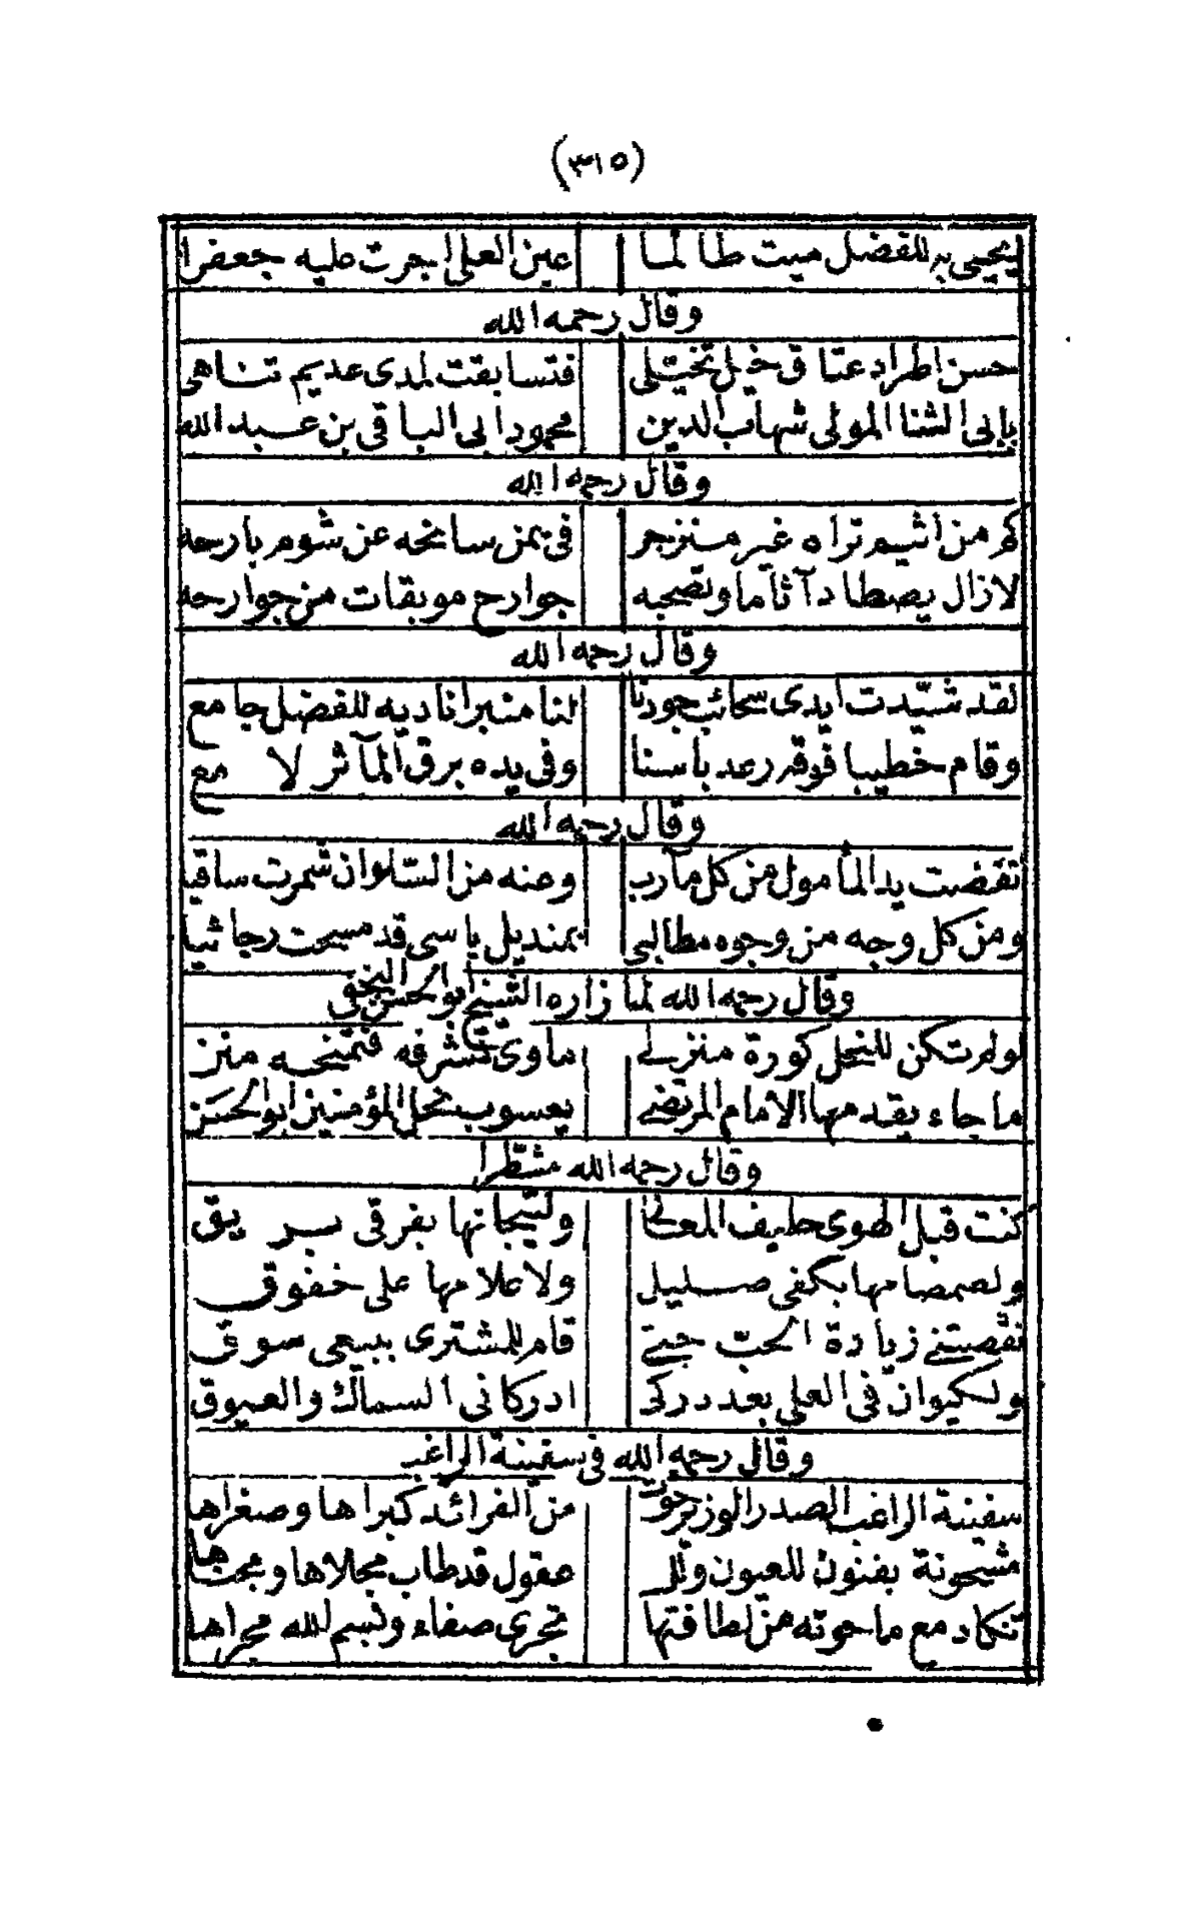 (٣١٥)
يحيى به للفضل ميت طالما عين العلى اجرت عليه جعفرا
وقال رحمه الله
حسن اطراد عتاق خيل تخيّلى فتسابقت لمدى عديم تناهى
بابى الثنا المولى شهاب الدين محمود ابى الباقى بن عبد الله
وقال رحمه الله
كم من اثيم تراه غير منزجر فى يمن سانحه عن شوم بارحه
لازال يصطاد آثاما وتصحبه جوارح موبقات من جوارحه
وقال رحمه الله
لقد شيّدت ايدى سحائب جودنا لنا منبرا ناديه للفضل جامع
وقام خطيبا فوقه رعد باسنا وفى يده برق المآثر لامع
وقال رحمه الله
نفضت يد المأمول من كل مآرب وعنه من السّلوان شمرت ساقيا
ومن كل وجه من وجوه مطالبى بمنديل ياسى قد مسحت رجائيا
وقال رحمه الله لما زاره الشيخ ابو الحسن النجفى
لو لم تكن للنحل كورة منزلى مأوى تشرفه فتمنحه منن
ما جاء يقدمها الامام المرتضى يعسوب نحل المؤمنين ابو الحسن
وقال رحمه الله مشطّرا
كنت قبل الهوى حليف المعالى ولتيجانها بفرقى بريق
ولصمصامها بكفى صليل ولاعلامها على خفوق
نقّصتنى زيادة الحبّ حتى قام للمشترى ببيعى سوق
ولكيوان فى العلى بعد دركى ادركانى السماك والعيوق
وقال رحمه الله فى سفينة الراغب
سفينة الراغب الصدر الوزير حوت من الفرائد كبراها وصغراها
مشحونة بفنون للعيون ولل عقول قد طاب مجلاها ومجناها
تكاد مع ما حوته من لطافتها تجرى صفاء وبسم الله مجراها